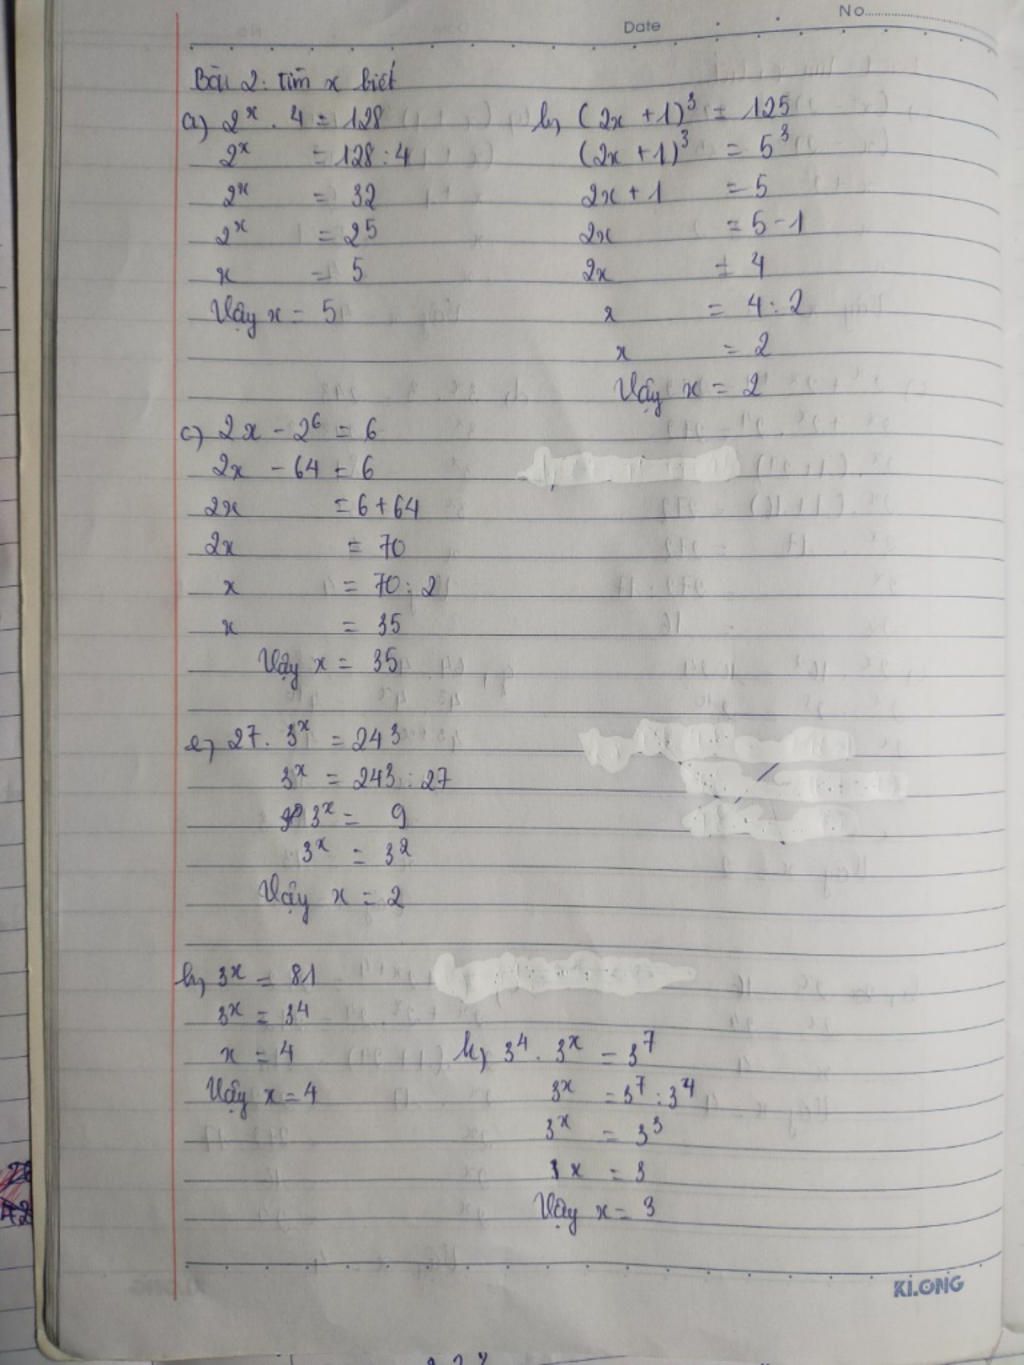 Date
No
Bài 2: tìm x biết
a, 2^x . 4 = 128
2^x = 128 : 4
2^x = 32
2^x = 2^5
x = 5
Vậy x = 5
b, (2x + 1)^3 = 125
(2x + 1)^3 = 5^3
2x + 1 = 5
2x = 5 - 1
2x = 4
x = 4 : 2
x = 2
Vậy x = 2
c, 2x - 2^6 = 6
2x - 64 = 6
2x = 6 + 64
2x = 70
x = 70 : 2
x = 35
Vậy x = 35
e, 27 . 3^x = 243
3^x = 243 : 27
3^x = 9
3^x = 3^2
Vậy x = 2
h, 3^x = 81
3^x = 3^4
x = 4
Vậy x = 4
k, 3^4 . 3^x = 3^7
3^x = 3^7 : 3^4
3^x = 3^3
x = 3
Vậy x = 3
KLONG